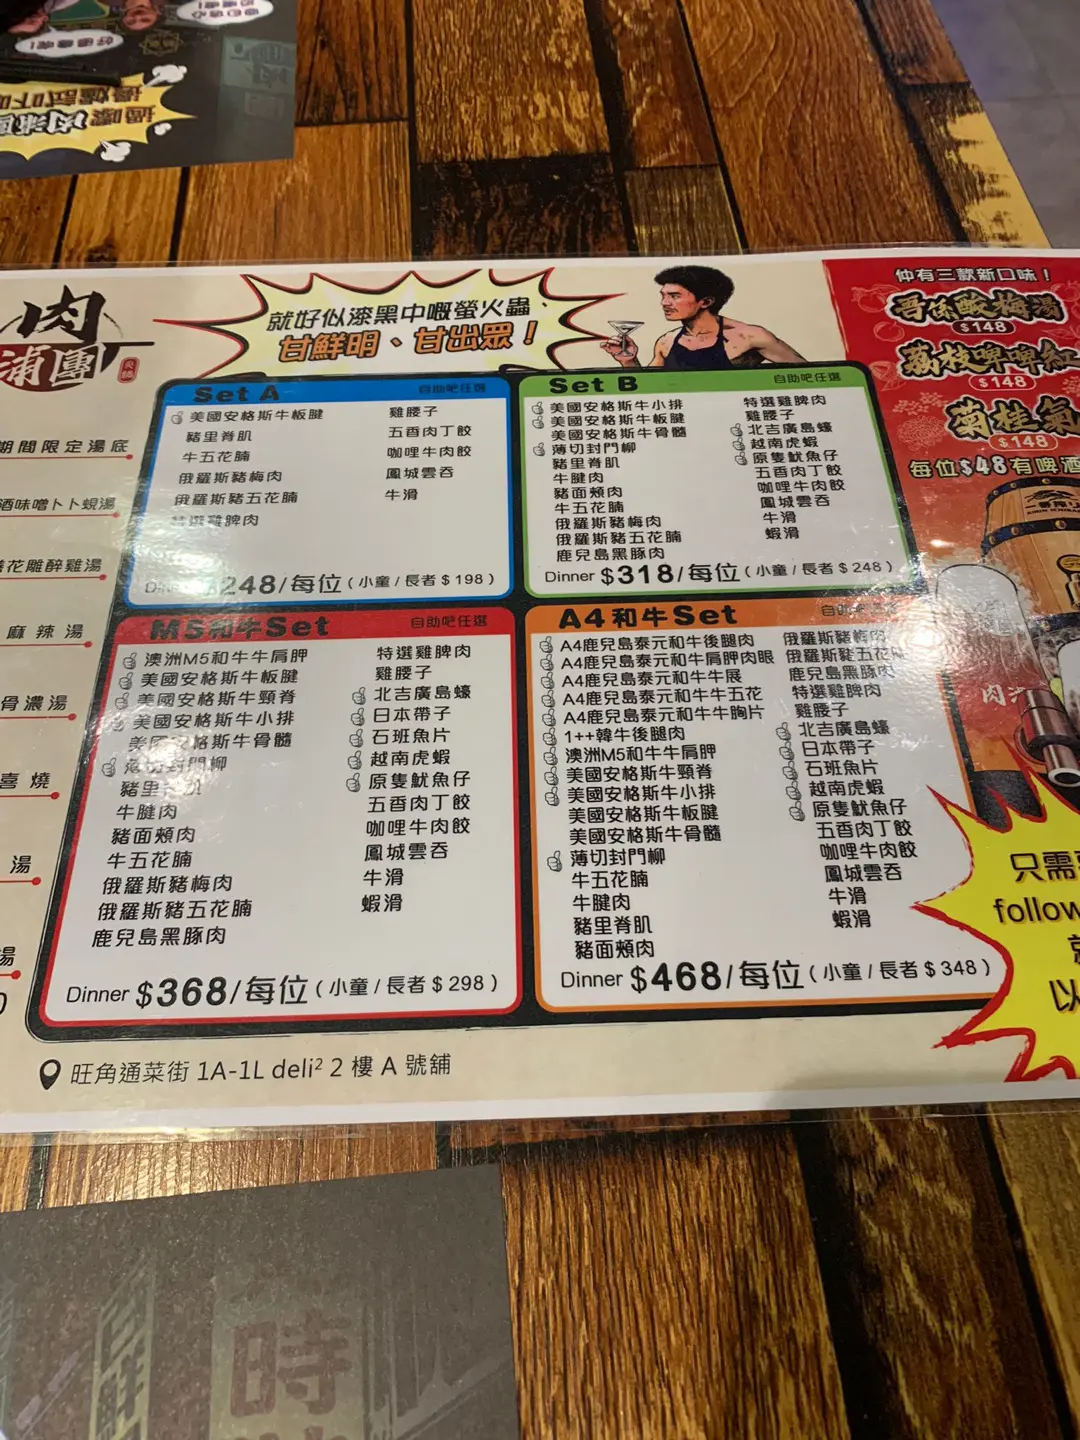 肉
蒲團
就好似漆黑中嘅螢火蟲、
甘鮮明、甘出眾！
仲有三款新口味！
$148
荔枝啤啤紅
$148
菊桂氣
$148
每位$48有啤酒
期間限定湯底
酒味噌卜卜蜆湯
花雕醉雞湯
麻辣湯
骨濃湯
喜燒
湯
湯
Set A 自助吧任選
美國安格斯牛板腱
豬里脊肌
牛五花腩
俄羅斯豬梅肉
俄羅斯豬五花腩
特選雞脾肉
雞腰子
五香肉丁餃
咖哩牛肉餃
鳳城雲吞
牛滑
$248/每位(小童/長者$198)
Set B 自助吧任選
美國安格斯牛小排
美國安格斯牛板腱
美國安格斯牛骨髓
薄切封門柳
豬里脊肌
牛腱肉
豬面頰肉
牛五花腩
俄羅斯豬梅肉
俄羅斯豬五花腩
鹿兒島黑豚肉
特選雞脾肉
雞腰子
北吉廣島蠔
越南虎蝦
原隻魷魚仔
五香肉丁餃
咖哩牛肉餃
鳳城雲吞
牛滑
蝦滑
Dinner $318/每位(小童/長者$248)
M5和牛Set 自助吧任選
澳洲M5和牛牛肩胛
美國安格斯牛板腱
美國安格斯牛頸脊
美國安格斯牛小排
美國安格斯牛骨髓
薄切封門柳
豬里脊肌
牛腱肉
豬面頰肉
牛五花腩
俄羅斯豬梅肉
俄羅斯豬五花腩
鹿兒島黑豚肉
特選雞脾肉
雞腰子
北吉廣島蠔
日本帶子
石班魚片
越南虎蝦
原隻魷魚仔
五香肉丁餃
咖哩牛肉餃
鳳城雲吞
牛滑
蝦滑
Dinner $368/每位(小童/長者$298)
A4和牛Set 自助吧任選
A4鹿兒島泰元和牛後腿肉
A4鹿兒島泰元和牛肩胛肉眼
A4鹿兒島泰元和牛牛展
A4鹿兒島泰元和牛牛五花
A4鹿兒島泰元和牛牛胸片
1++韓牛後腿肉
澳洲M5和牛牛肩胛
美國安格斯牛頸脊
美國安格斯牛小排
美國安格斯牛板腱
美國安格斯牛骨髓
薄切封門柳
牛五花腩
牛腱肉
豬里脊肌
豬面頰肉
俄羅斯豬梅肉
俄羅斯豬五花腩
鹿兒島黑豚肉
特選雞脾肉
雞腰子
北吉廣島蠔
日本帶子
石班魚片
越南虎蝦
原隻魷魚仔
五香肉丁餃
咖哩牛肉餃
鳳城雲吞
牛滑
蝦滑
Dinner $468/每位(小童/長者$348)
只需
follow
以
旺角通菜街 1A-1L deli² 2 樓 A 號舖
時